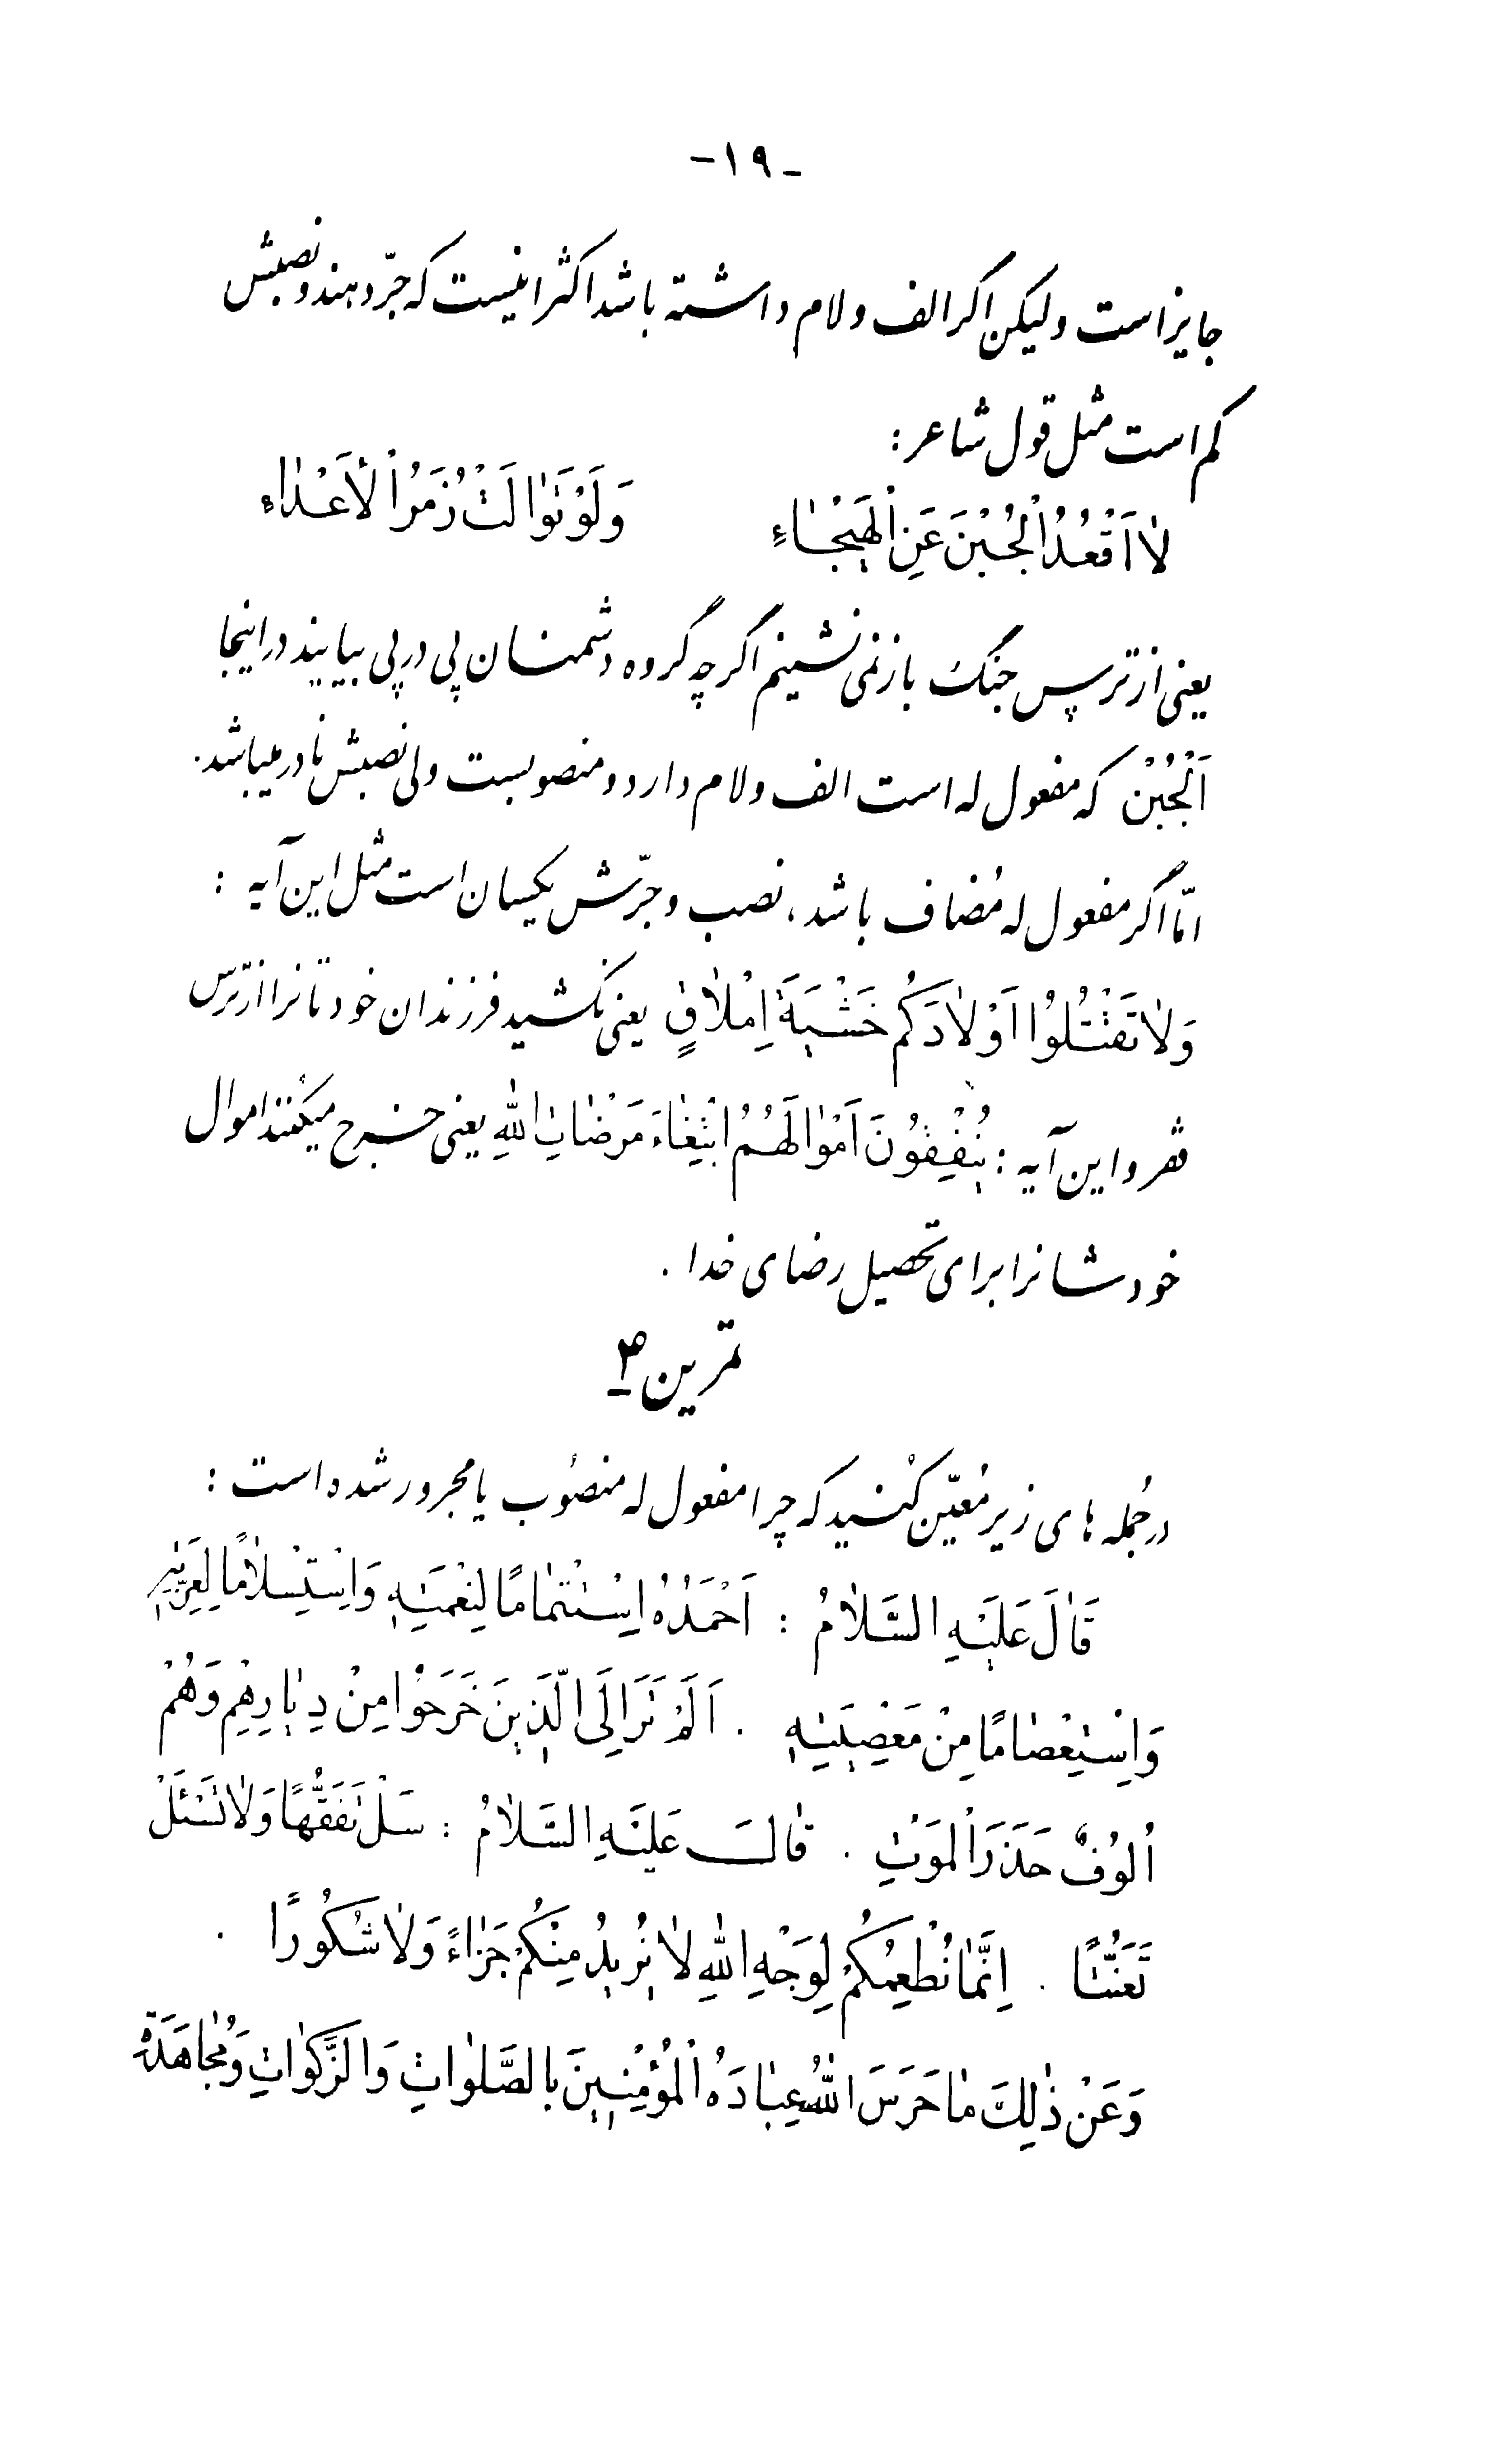 -۱۹-
جایز است ولیکن اگر الف و لام داشته باشد اکثر اینست که جرّ دهند و نصبش
کم است مثل قول شاعر :
لٰا اَقْعُدُ اْلجُبْنَ عَنِ اْلهَیْجٰاءِ
وَلَوْ تَوٰالَتْ زُمَرُ اْلأَعْدٰاءِ
یعنی از ترس جنگ باز نمی نشینم اگر چه گروه دشمنان پی در پی بیایند در اینجا
اَلْجُبْنَ که مفعول له است الف و لام دارد و منصوبست ولی نصبش نادر میباشد.
امّا اگر مفعول له مُضاف باشد، نصب و جرّش یکسان است مثل این آیه :
وَلٰا تَقْتُلُوا اَوْلٰادَکُم خَشْیَةَ اِمْلٰاقٍ یعنی نکشید فرزندان خودتانرا از ترس
فقر و این آیه : یُنْفِقُونَ اَمْوٰالَهُمُ ابْتِغٰاءَ مَرْضٰاتِ اللهِ یعنی خرج میکنند اموال
خودشانرا برای تحصیل رضای خدا .
تمرین ۴
در جُمله های زیر مُعیّن کنید که چرا مفعول له منصُوب یا مجرور شده است :
قٰالَ عَلَیْهِ السَّلٰامُ : اَحْمَدُهُ اِسْتْتمٰامًا لِنِعْمَتِهِ وَاِسْتِسْلٰامًا لِعِزَّتِهِ
وَاِسْتِعْصٰامًا مِنْ مَعْصِیَتِهِ . اَلَمْ تَرَ اِلَی الَّذِینَ خَرَجُوْا مِنْ دِیٰارِهِمْ وَهُمْ
اُلُوفٌ حَذَرَ اْلمَوْتِ . قٰالَ عَلَیْهِ السَّلٰامُ : سَلْ تَفَقُّهًا وَلٰا تَسْئَلْ
تَعَنُّتًا . اِنَّمٰا نُطْعِمُکُمْ لِوَجْهِ اللهِ لٰا نُرِیدُ مِنْکُمْ جَزٰاءً وَلٰا شُکُورًا .
وَعَنْ ذٰلِكَ مٰا حَرَسَ اللهُ عِبٰادَهُ اْلمُؤْمِنِینَ بِالصَّلَوٰاتِ وَالزَّکَوٰاتِ وَمُجٰاهَدَةِ